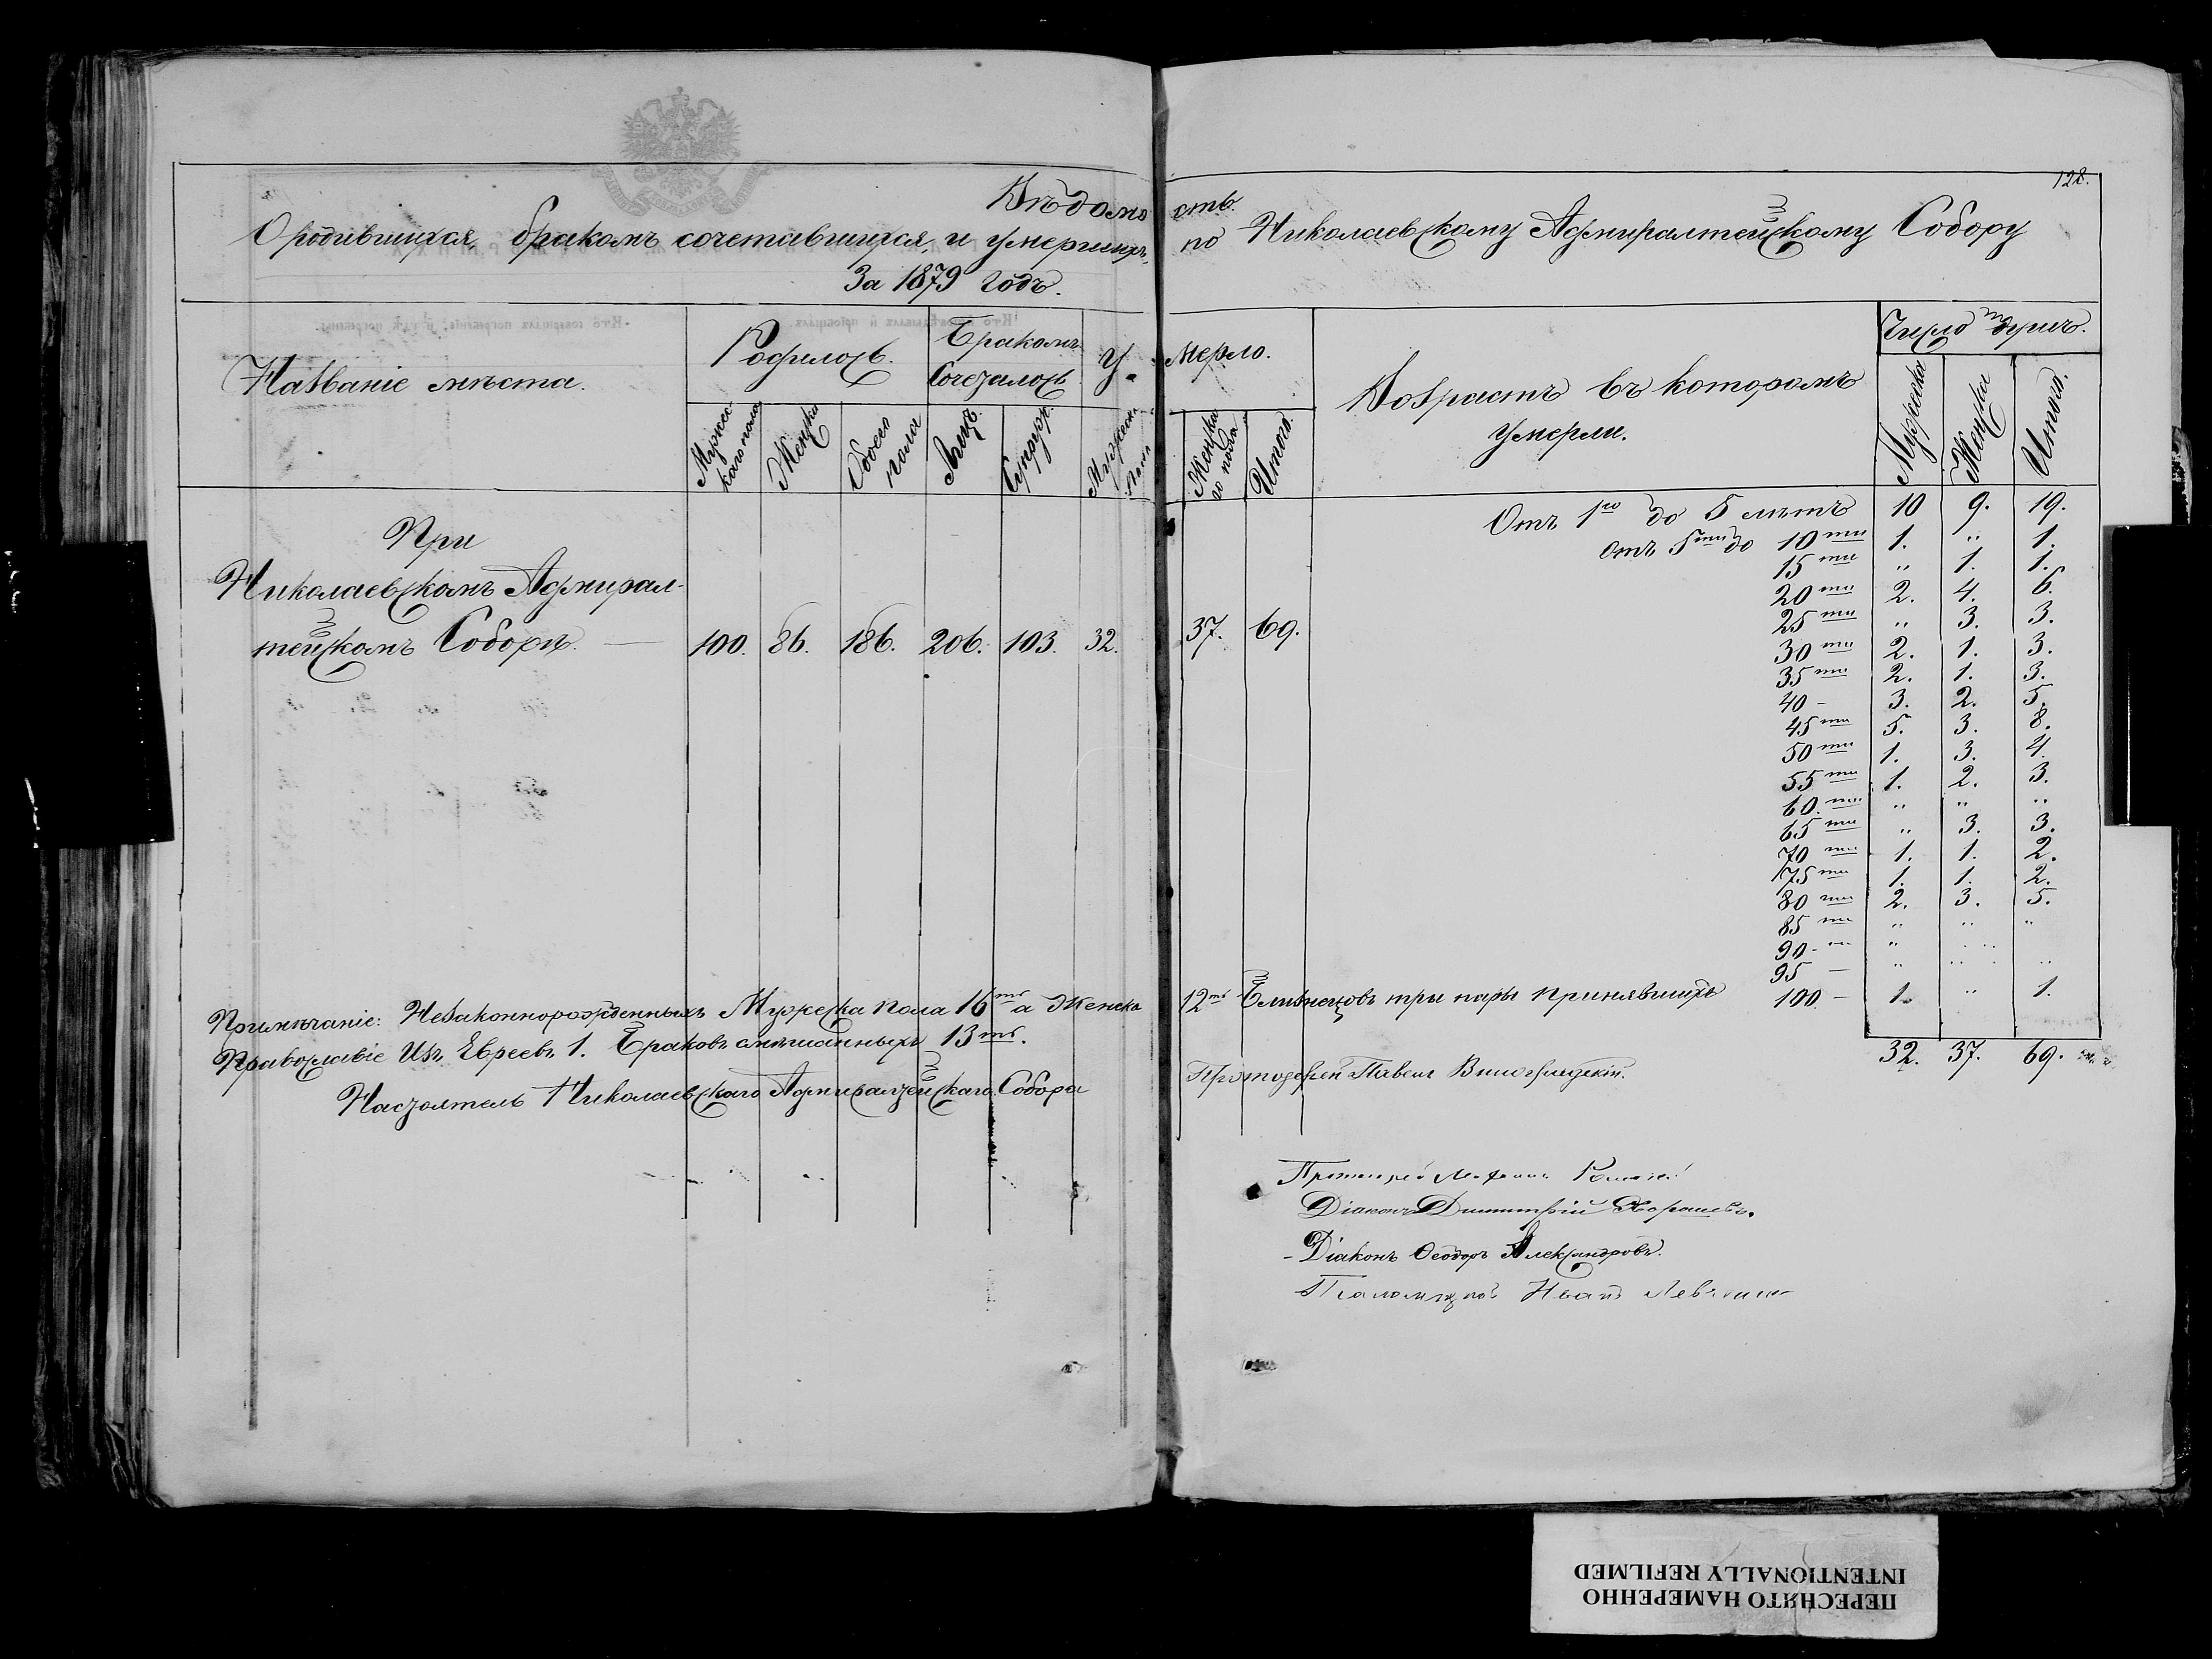 128.
Вѣдомость
О родившихся, бракомъ сочетавшихся, и умершихъ, по Николаевскому Адмиралтейскому Собору
За 1879 годъ.
Названіе мѣста.
Родилось.
Бракомъ Сочеталось
Умерло.
Возрастъ въ которомъ умерли.
Число душъ.
Мужескаго пола
Женска
Обоего пола
Лицъ.
Супруж.
Мужеска пола
Женскаго пола
Итого.
Мужеска
Женска
Итого.
При
Николаевскомъ Адмирал-
тейскомъ Соборѣ. — 100. 86. 186. 206. 103. 32. 37. 69.
Отъ 1го до 5 лѣтъ 10 9. 19.
отъ 5ти до 10ти 1. " 1.
15ти " 1. 1.
20ти 2. 4. 6.
25ти " 3. 3.
30ти 2. 1. 3.
35ти 2. 1. 3.
40 - 3. 2. 5.
45ти 5. 3. 8.
50ти 1. 3. 4.
55ти 1. 2. 3.
60.ти " " "
65ти " 3. 3.
70ти 1. 1. 2.
75ти 1. 1. 2.
80ти 2. 3. 5.
85ти " " "
90-ти " " "
95 — " " "
100 - 1. " 1.
32. 37. 69.
Примѣчаніе: Незаконнорожденныхъ Мужеска пола 16ть а Женска 12ть Близнецовъ три пары Принявшихъ
Православіе Изъ Евреевъ 1. Браковъ смѣшанныхъ 13ть.
Настоятель Николаевскаго Адмиралтейскаго Собора Протоіерей Павелъ
Протоіерей
Діаконъ Димитрій
Діаконъ Ѳеодоръ Александровъ.
Псаломщикъ Иванъ
ПЕРЕСНЯТО НАМЕРЕННО
INTENTIONALLY REFILMED